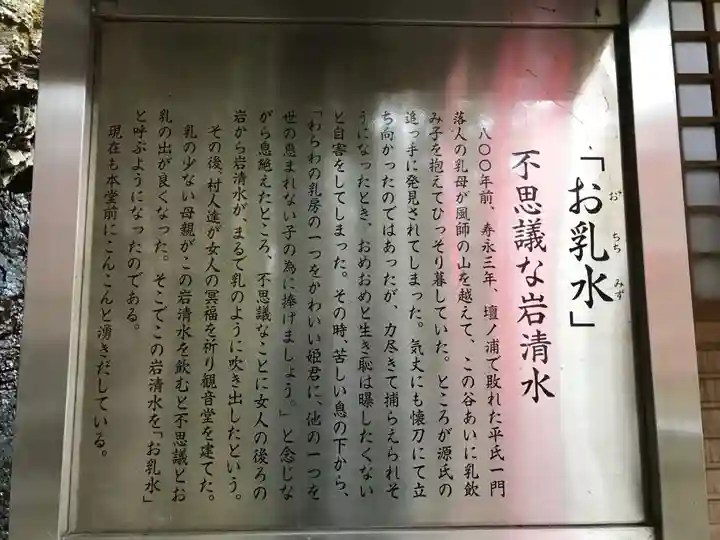 「お乳水」
おちちみず
不思議な岩清水
八〇〇年前、寿永三年、壇ノ浦で敗れた平氏一門
落人の乳母が風師の山を越えて、この谷あいに乳飲
み子を抱えてひっそり暮していた。ところが源氏の
追っ手に発見されてしまった。気丈にも懐刀にて立
ち向かったのではあったが、力尽きて捕らえられそ
うになったとき、おめおめと生き恥は曝したくない
と自害をしてしまった。その時、苦しい息の下から、
「わらわの乳房の一つをかわいい姫君に、他の一つを
世の恵まれない子の為に捧げましょう。」と念じな
がら息絶えたところ、不思議なことに女人の後ろの
岩から岩清水が、まるで乳のように吹き出したという。
その後、村人達が女人の冥福を祈り観音堂を建てた。
乳の少ない母親がこの岩清水を飲むと不思議とお
乳の出が良くなった。そこでこの岩清水を「お乳水」
と呼ぶようになったのである。
現在も本堂前にこんこんと湧きだしている。